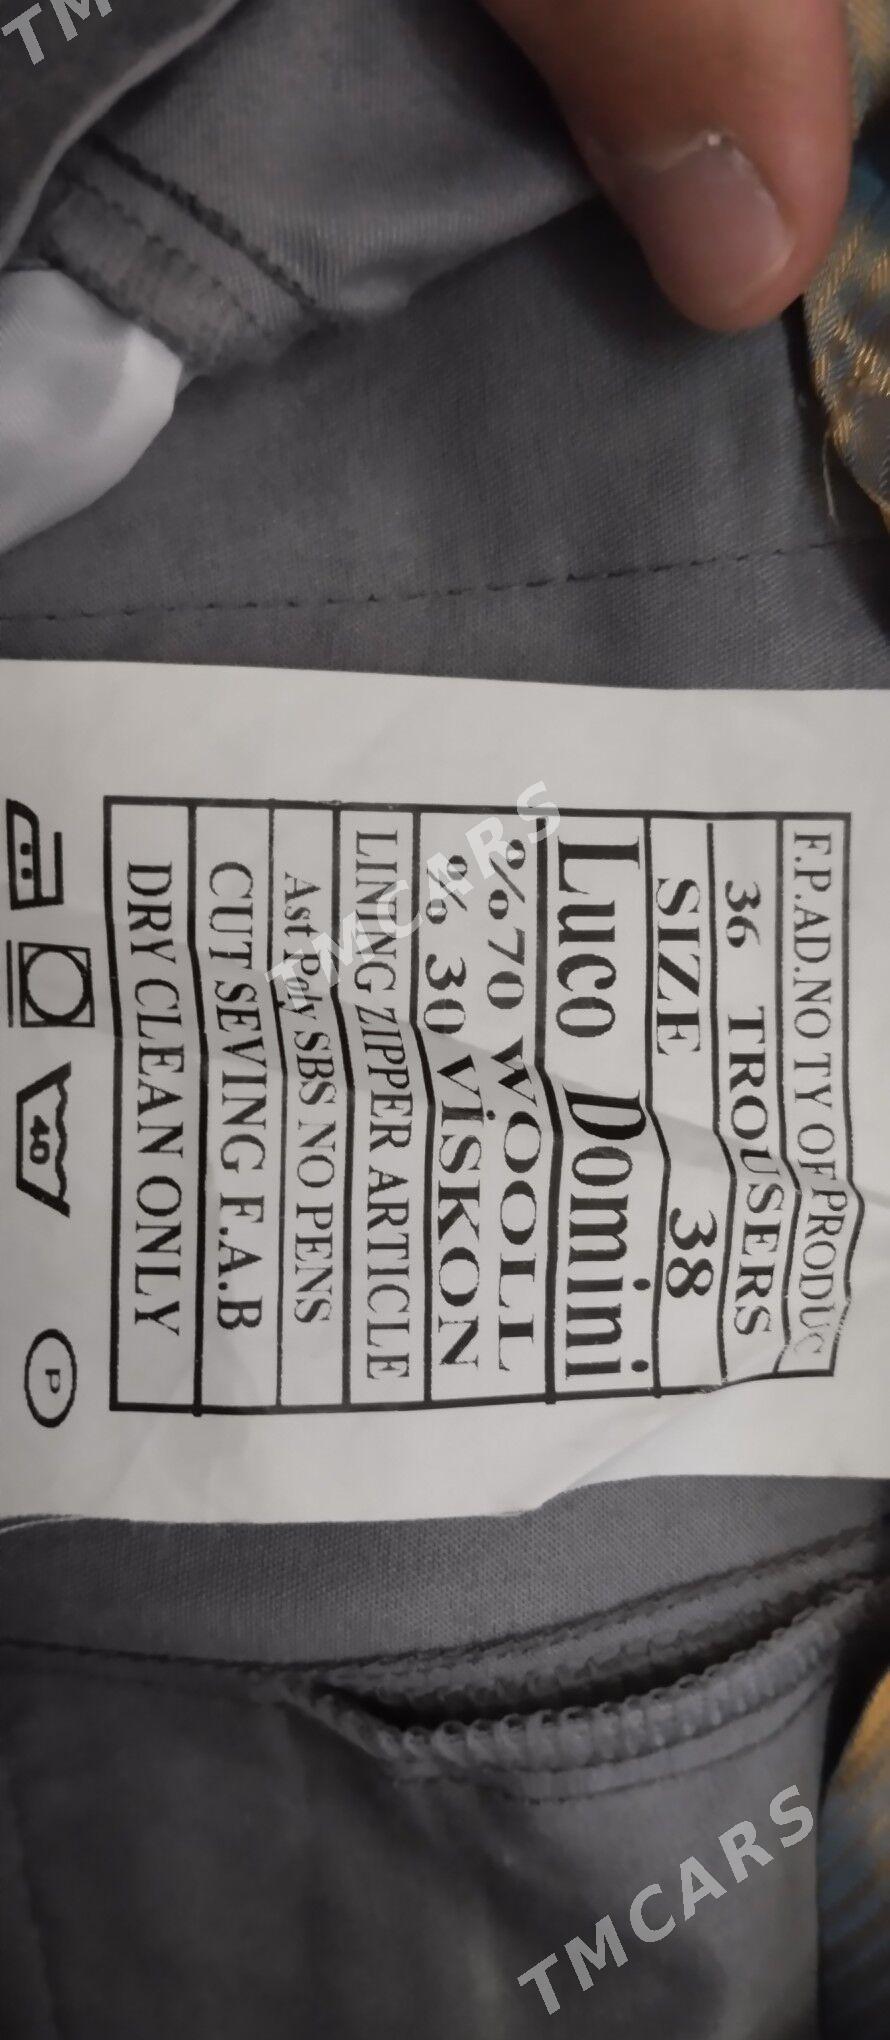 F.P.AD.NO TY OF PRODUC
36 TROUSERS
SIZE 38
Luco Domini
%70 WOOLL
% 30 VİSKON
LINING ZIPPER ARTICLE
Ast Poly SBS NO PENS
CUT SEVING F.A.B
DRY CLEAN ONLY
40
P
TMCARS
TMCARS
TM